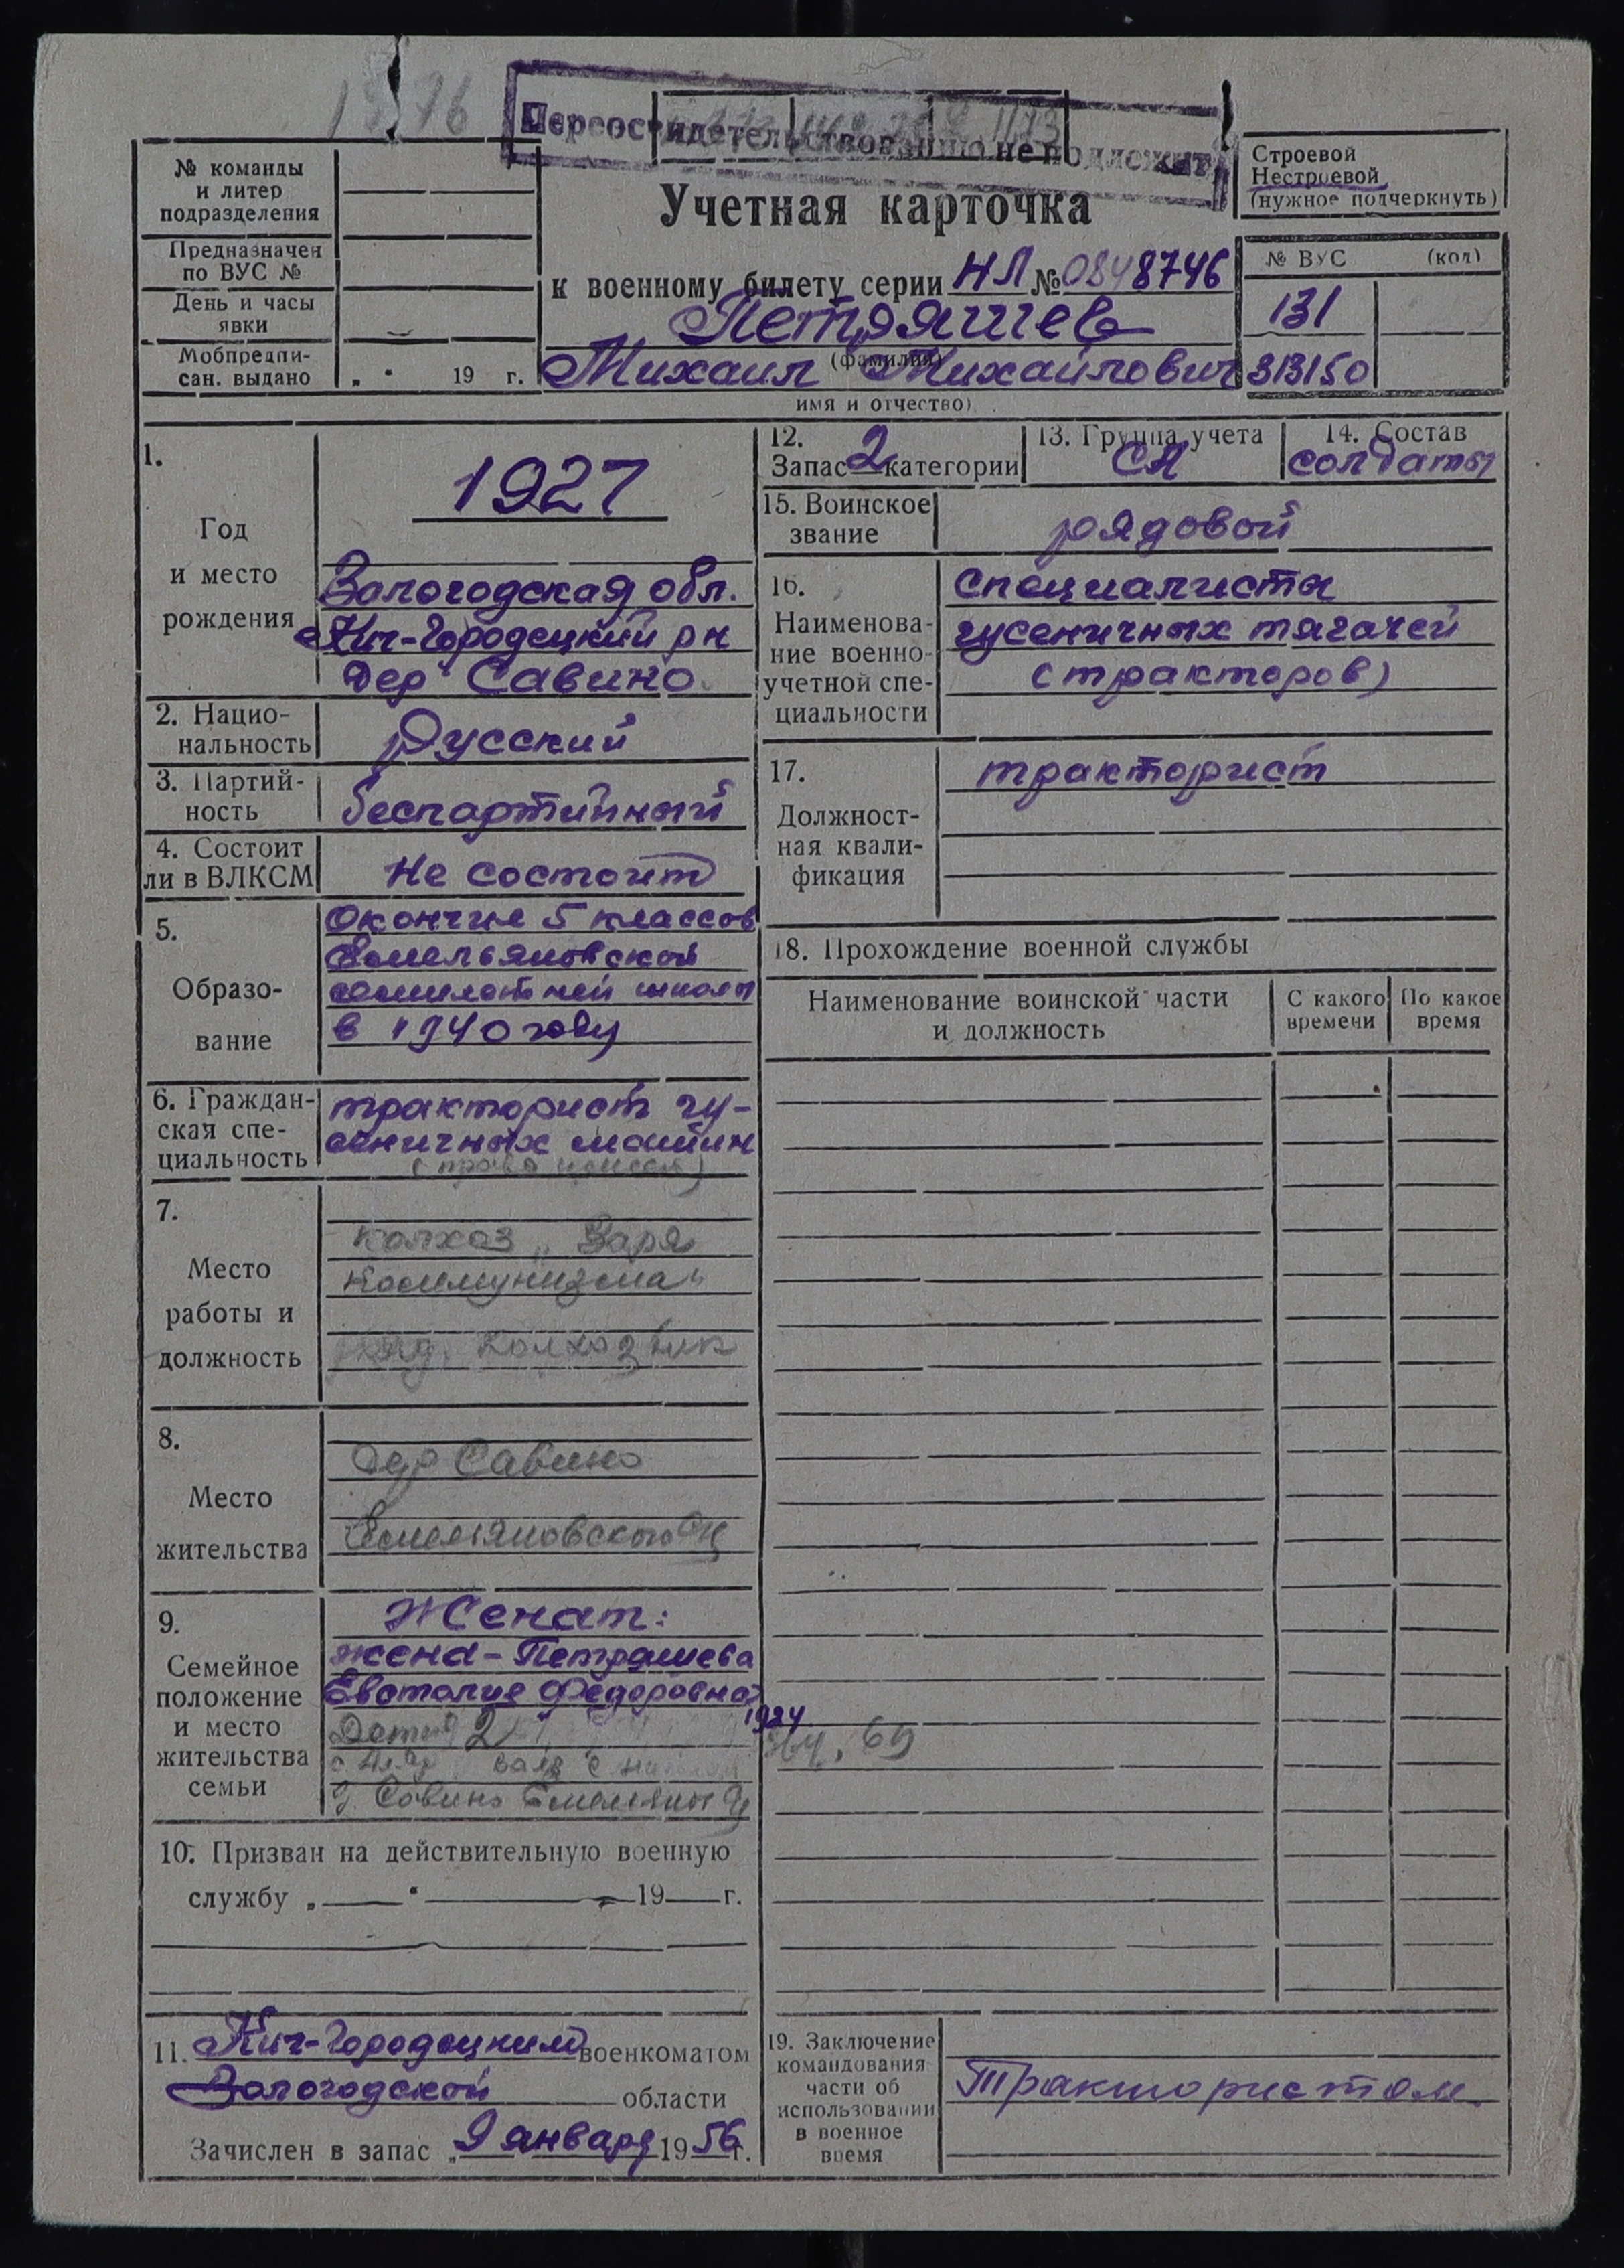 Переосвидетельствованию не подлежит
№ команды
и литер
подразделения
Предназначен
по ВУС №
День и часы
явки
Мобпредпи-
сан. выдано „ " 19 г.
Учетная карточка
к военному билету серии НЛ № 0848746
Петряшев
(фамилия)
Михаил Михайлович
имя и отчество)
Строевой
Нестроевой
(нужное подчеркнуть)
№ ВУС (код)
131
313150
1.
Год
и место
рождения
1927
Вологодская обл.
Кич-Городецкий рн
дер Савино
2. Нацио-
нальность
Русский
3. Партий-
ность
беспартийный
4. Состоит
ли в ВЛКСМ
Не состоит
5.
Образо-
вание
Окончил 5 классов
Емельяновской
семилетней школы
в 1940 году
6. Граждан-
ская спе-
циальность
тракторист гу-
сеничных машин
7.
Место
работы и
должность
колхоз „Заря
Коммунизма"
колхозник
8.
Место
жительства
дер Савино
Емельяновского
9.
Семейное
положение
и место
жительства
семьи
Женат:
жена - Петряшева
Евсталия Федоровна
1924
Дети 2
64, 69
д. Савино
10. Призван на действительную военную
службу „ " 19 г.
11. Кич-Городецким военкоматом
Вологодской области
Зачислен в запас „ 9 января 1956 г.
12.
Запас 2 категории
13. Группа учета
СА
14. Состав
солдаты
15. Воинское
звание
рядовой
16.
Наименова-
ние военно-
учетной спе-
циальности
специалисты
гусеничных тягачей
(тракторов)
17.
Должност-
ная квали-
фикация
тракторист
18. Прохождение военной службы
Наименование воинской части
и должность
С какого
времени
По какое
время
19. Заключение
командования
части об
использовании
в военное
время
Трактористом.